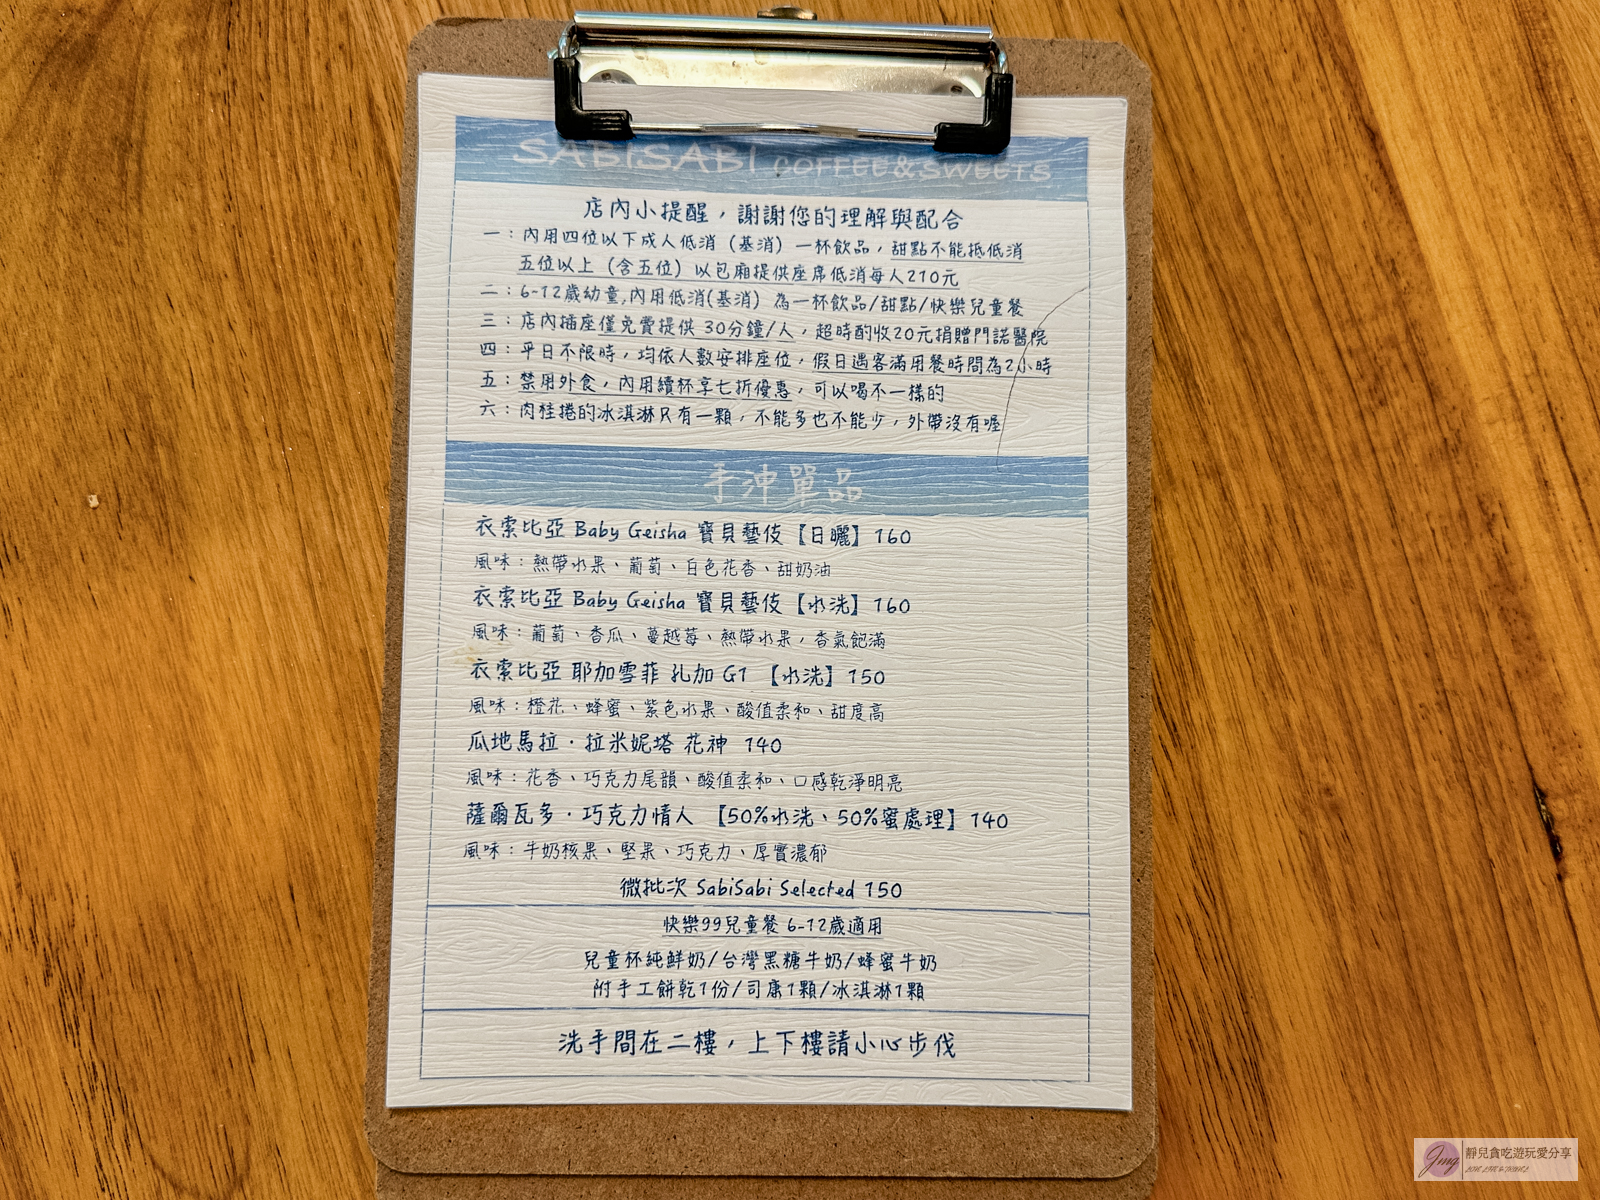 SABISABI COFFEE&SWEETS
店內小提醒，謝謝您的理解與配合
一：內用四位以下成人低消（基消）一杯飲品，甜點不能抵低消
五位以上（含五位）以包廂提供座席低消每人210元
二：6-12歲幼童,內用低消(基消) 為一杯飲品/甜點/快樂兒童餐
三：店內插座僅免費提供 30分鐘/人，超時酌收20元捐贈門諾醫院
四：平日不限時，均依人數安排座位，假日遇客滿用餐時間為2小時
五：禁用外食，內用續杯享七折優惠，可以喝不一樣的
六：肉桂捲的冰淇淋只有一顆，不能多也不能少，外帶沒有喔
手沖單品
衣索比亞 Baby Geisha 寶貝藝伎【日曬】160
風味：熱帶水果、葡萄、白色花香、甜奶油
衣索比亞 Baby Geisha 寶貝藝伎【水洗】160
風味：葡萄、香瓜、蔓越莓、熱帶水果，香氣飽滿
衣索比亞 耶加雪菲 孔加 G1 【水洗】150
風味：橙花、蜂蜜、紫色水果、酸值柔和、甜度高
瓜地馬拉．拉米妮塔 花神 140
風味：花香、巧克力尾韻、酸值柔和、口感乾淨明亮
薩爾瓦多．巧克力情人 【50%水洗、50%蜜處理】140
風味：牛奶核果、堅果、巧克力、厚實濃郁
微批次 SabiSabi Selected 150
快樂99兒童餐 6-12歲適用
兒童杯純鮮奶/台灣黑糖牛奶/蜂蜜牛奶
附手工餅乾1份/司康1顆/冰淇淋1顆
洗手間在二樓，上下樓請小心步伐
Jmg
靜兒貪吃遊玩愛分享